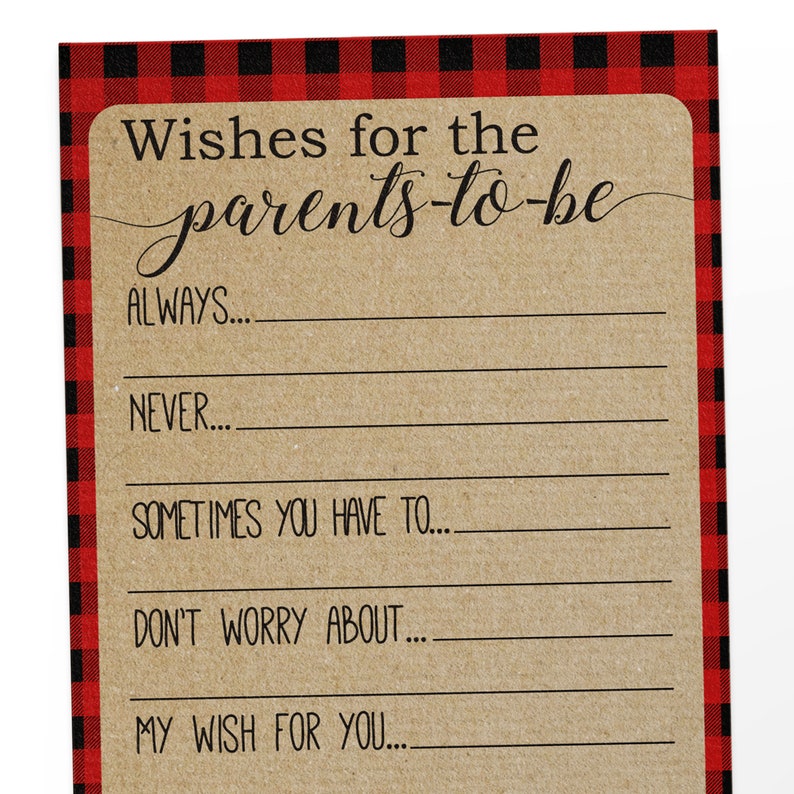 Wishes for the
parents-to-be
ALWAYS...
NEVER...
SOMETIMES YOU HAVE TO...
DON'T WORRY ABOUT...
MY WISH FOR YOU...